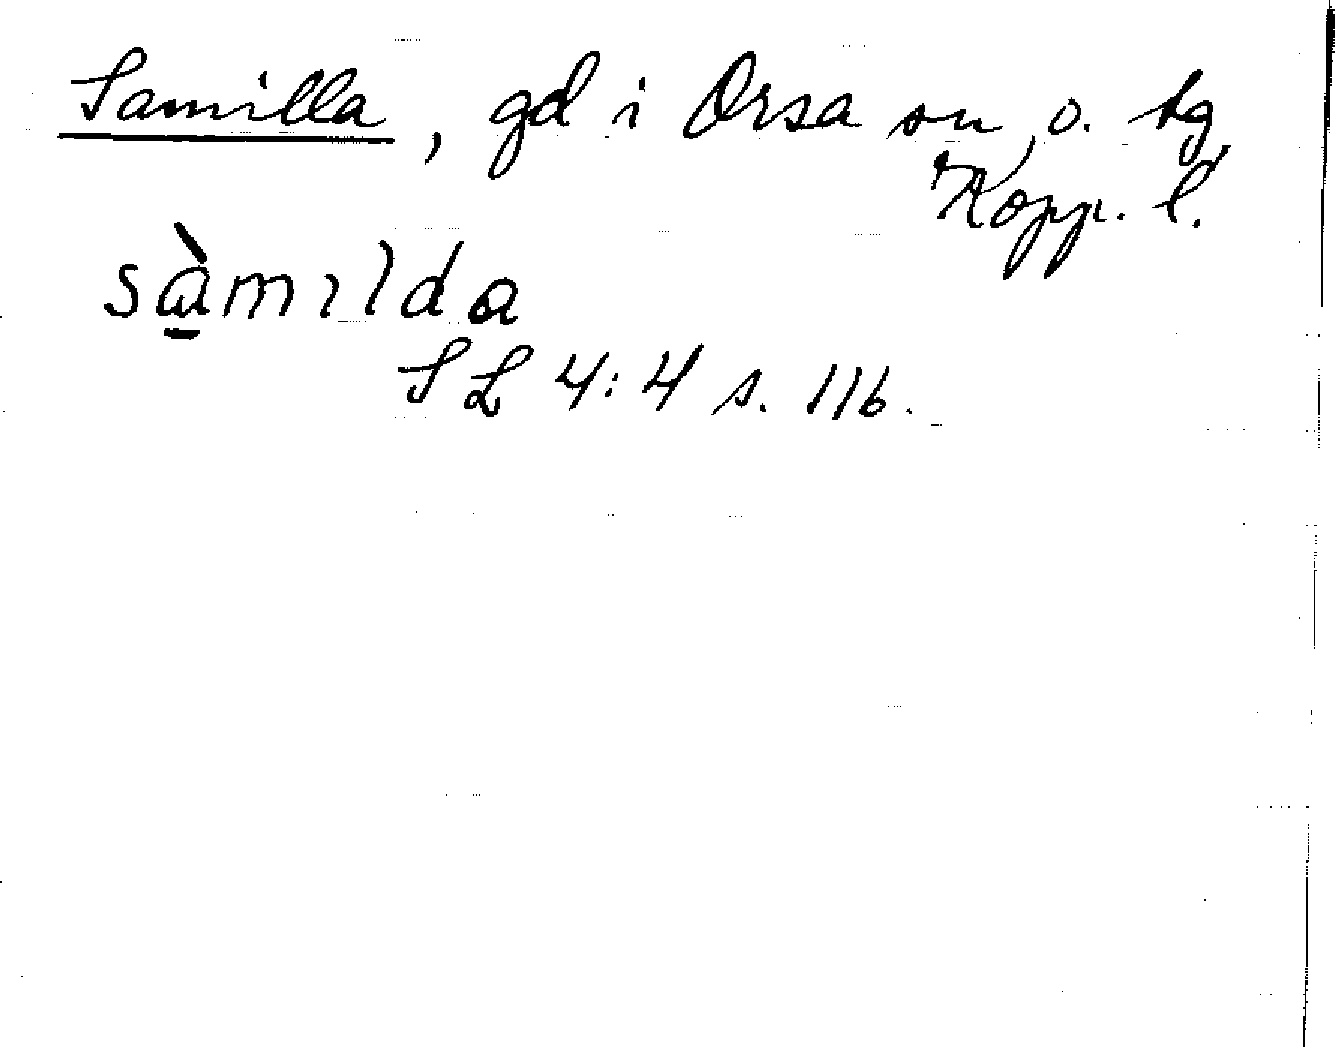 Samilla, gd i Orsa sn o. tg,
Kopp. l.
sàmılda
SL 4:4 s. 116.